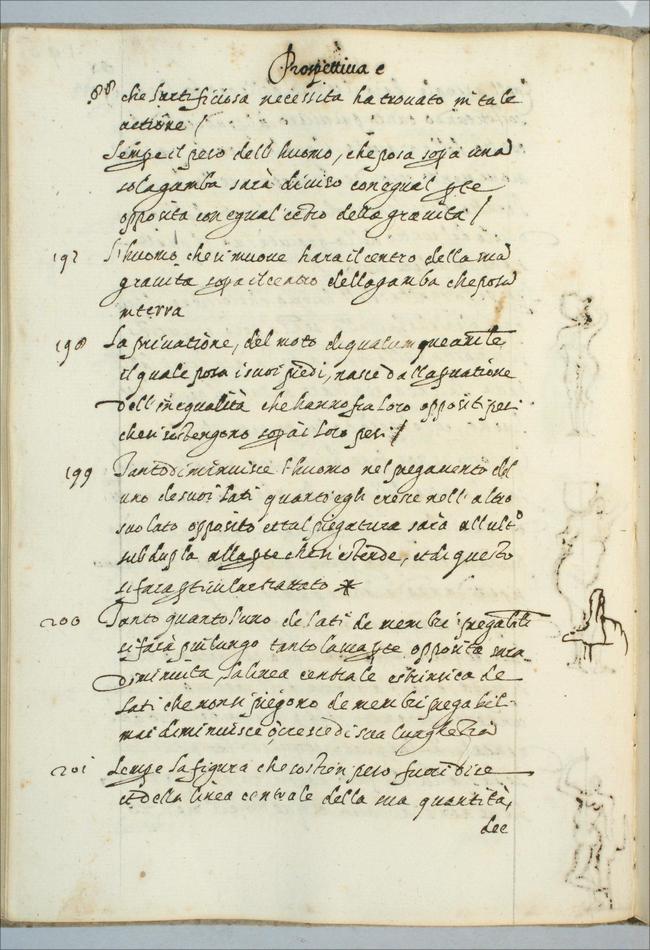 Prospettiua e
88 che l'artificiosa necessita ha trouato in tale
actione /
Sempe il peso dell huomo, che posa sopa una
sola gamba sarà diuiso con egual pte
opposita con egual cetro della grauita /
197 l'huomo, che si muoue hara il centro della sua
grauita sopa il centro della gamba che posa
in terra
198 La priuatione, del moto di qualumque ani.le
il quale posa i suoi piedi, nasce dalla puatione
dell' inequalità che hanno fra loro oppositi pesi
che si sostengono sopa i loro pesi /
199 Tanto diminuisce l'huomo nel piegamento del
uno de suoi lati quanto egli cresce nell' altro
suo lato opposito et tal piegatura sarà all ult.o
subdupla alla pte che si estende, et di questo
si fara pticulare trattato
200 Tanto quanto l'uno de lati de membri piegabili
si farà piu lungo tanto la sua pte opposita sara
diminuita, la linea centrale estrinsica de
lati che non si piegono de membri piegabil.
mai diminuisce o, cresce di sua lunghezza
201 Sempe la figura che sostien peso fuori di se
et della linea centrale della sua quantità,
dee